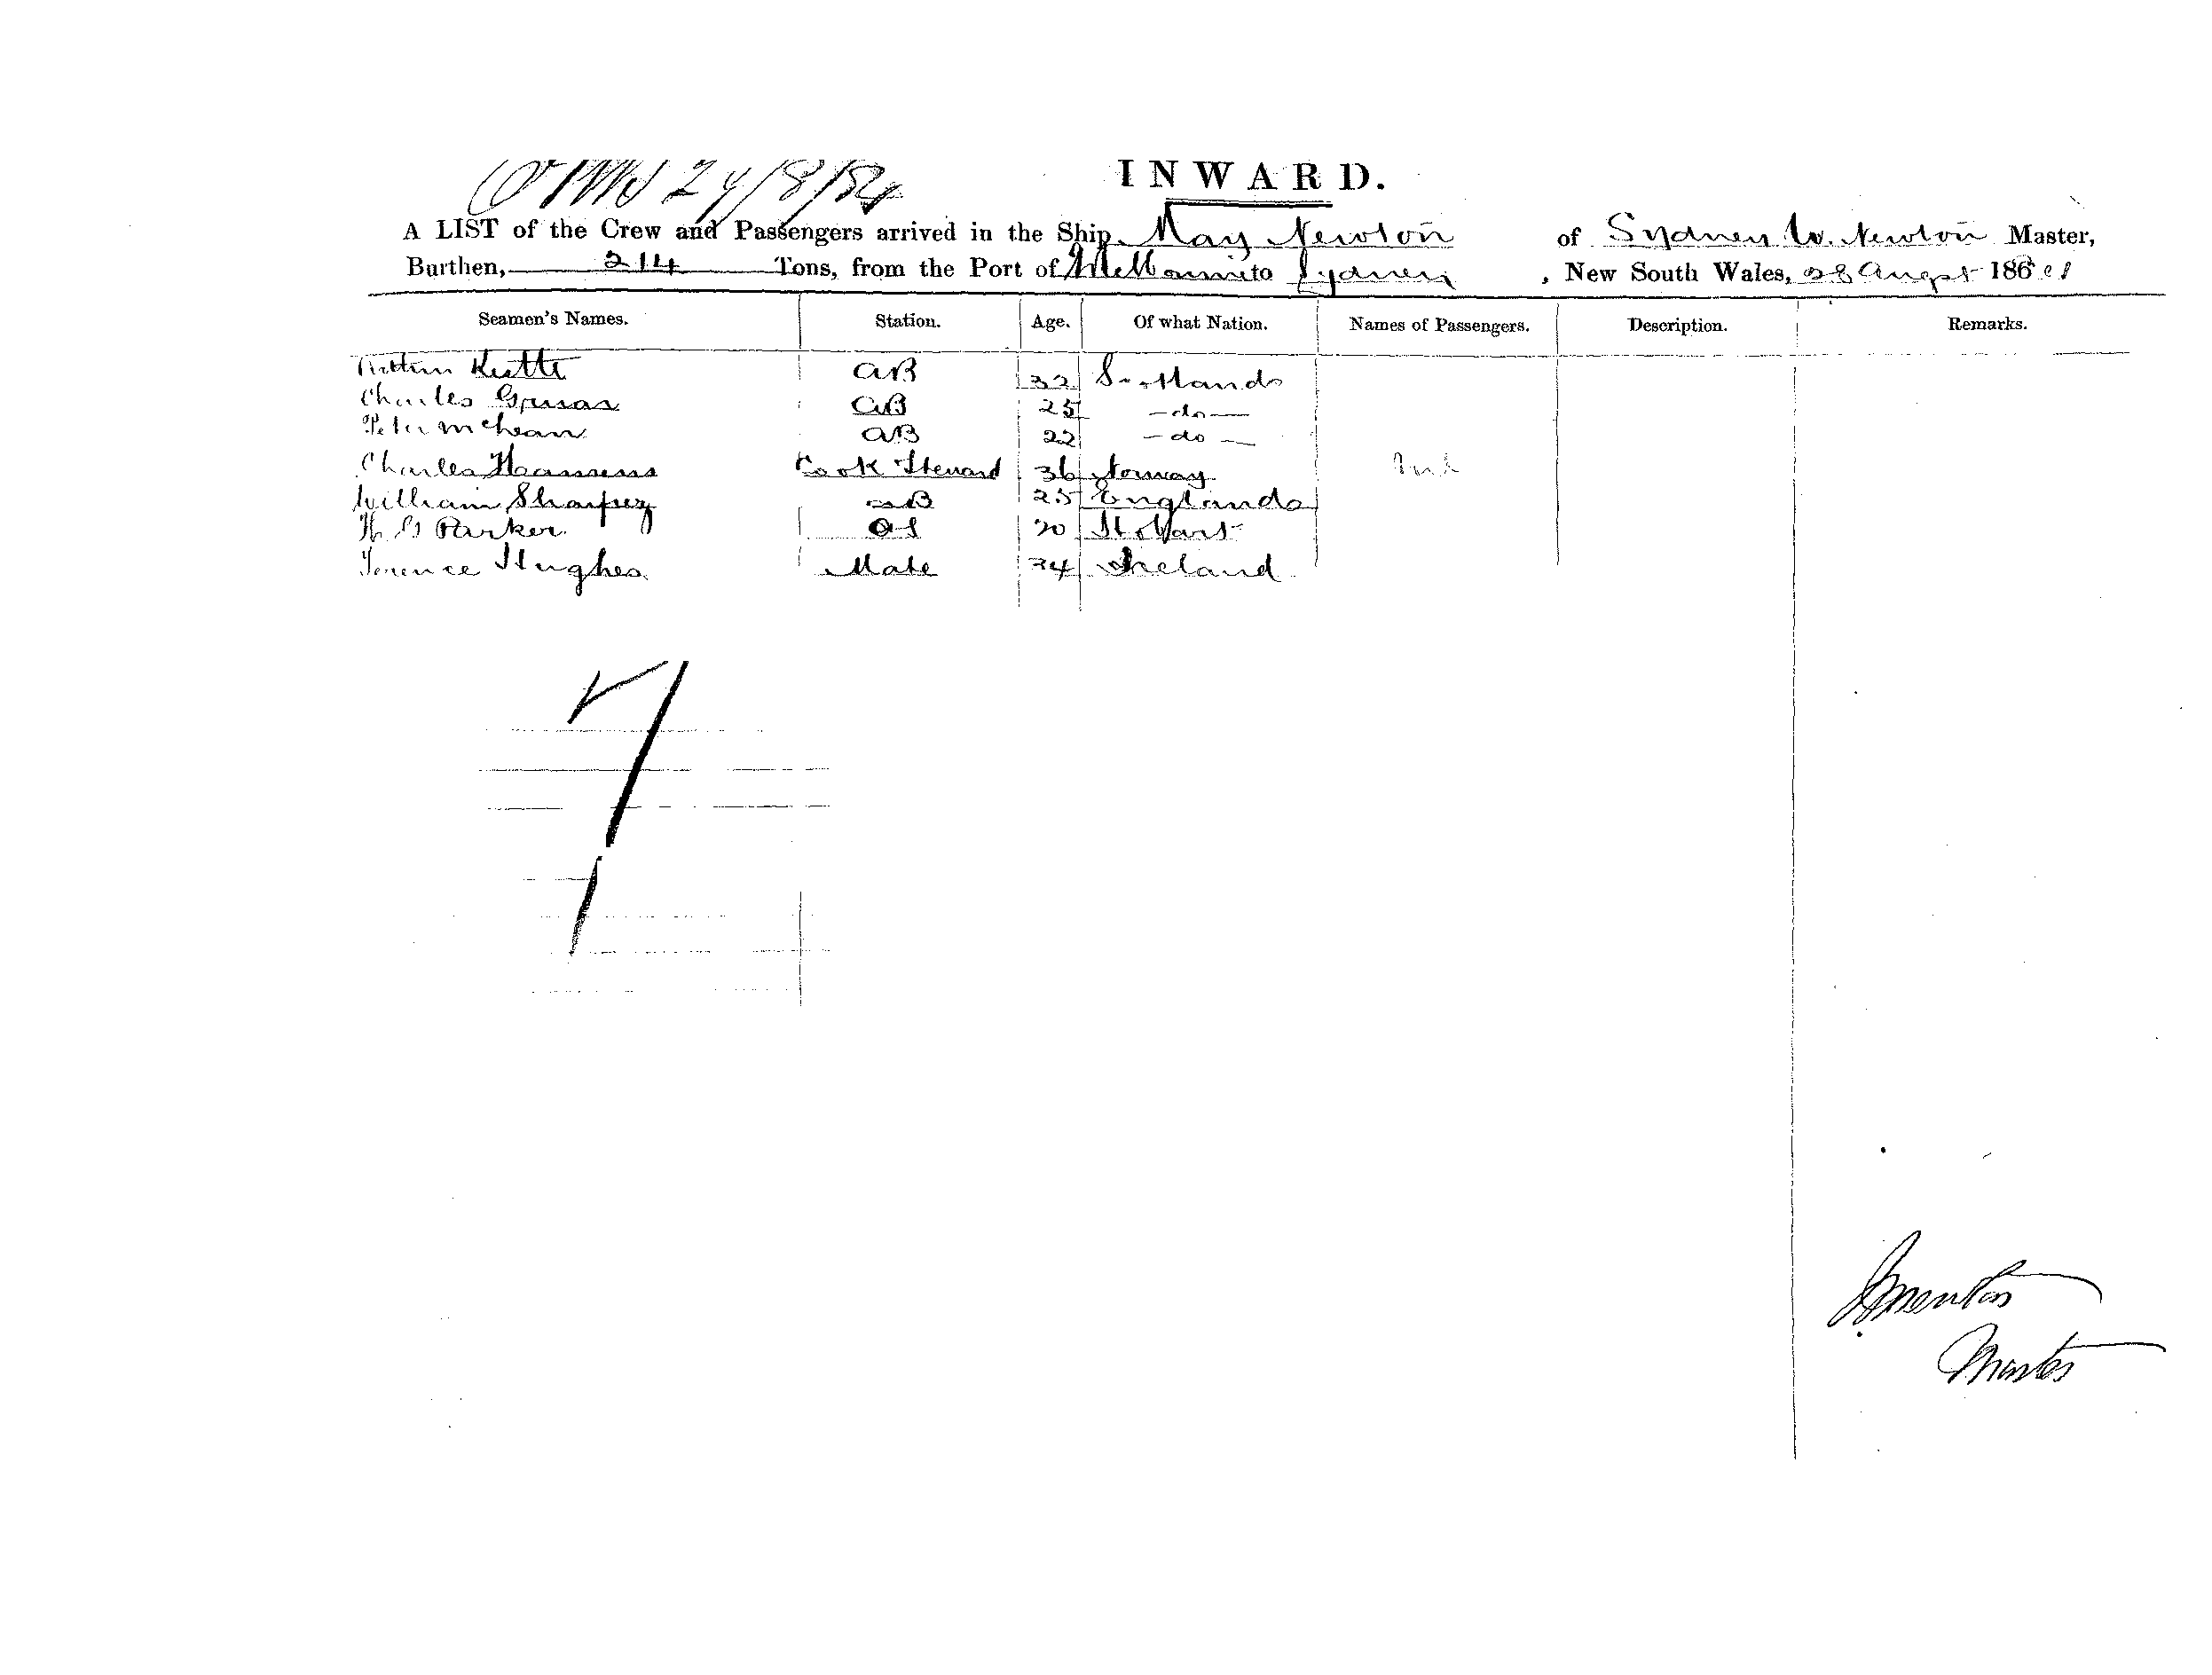 INWARD.
A LIST of the Crew and Passengers arrived in the Ship May Newton of Sydney W. Newton Master,
Burthen, 214 Tons, from the Port of Melbourne to Sydney, New South Wales, 28 Augst 186
Seamen's Names. Station. Age. Of what Nation. Names of Passengers. Description. Remarks.
AB 32 Scotland
Charles AB 25 -do-
Peter McLean AB 22 -do-
Charles Cook Steward 36 Norway
William AB 25 England
Parker OS 20 Hobart
Terence Hughes Mate 34 Ireland
7
Newton
Master